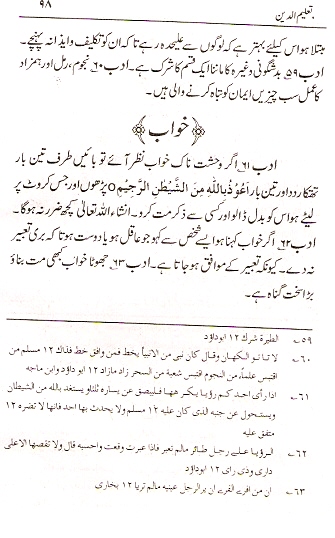 ۹۸ تعلیم الدین
مبتلا ہو اس کیلئے بہتر ہے کہ لوگوں سے علیحدہ رہے تاکہ ان کو تکلیف و ایذا نہ پہنچے۔
ادب ۵۹ بدشگونی وغیرہ کا ماننا ایک قسم کا شرک ہے۔ ادب ۶۰ نجوم، رمل اور ہمزاد
کا عمل سب چیزیں ایمان کو تباہ کرنے والی ہیں۔
﴿خواب﴾
ادب ۶۱ اگر وحشت ناک خواب نظر آئے تو بائیں طرف تین بار
تھتکار دو اور تین بار اَعُوْذُ بِاللّٰهِ مِنَ الشَّیْطٰنِ الرَّجِیْمِo پڑھوں اور جس کروٹ پر
لیٹے ہو اس کو بدل ڈالو اور کسی سے ذکر مت کرو۔ انشاء اللہ تعالیٰ کچھ ضرر نہ ہوگا۔
ادب ۶۲ اگر خواب کہنا ہو ایسے شخص سے کہو جو عاقل ہو یا دوست ہو تاکہ بری تعبیر
نہ دے۔ کیونکہ تعبیر کے موافق ہو جاتا ہے۔ ادب ۶۳ جھوٹا خواب کبھی مت بناؤ
بڑا سخت گناہ ہے۔
۵۹ الطیرة شرك ۱۲ ابوداؤد
۶۰ لا تاتو الکهان وقال کان نبی من الانبیآ یخط فمن وافق خط فذاك ۱۲ مسلم من
اقتبس علماً من النجوم اقتبس شعبة من السحر زاد مازاد ۱۲ ابو داؤد وابن ماجه
۶۱ اذا رأی احد کم رؤیا یکر هها فلیبصق عن یساره ثلثاو یستغذ بالله من الشیطان
ویستحول عن جنبه الذی کان علیه ۱۲ مسلم ولا یحدث بها احد فانها لا تضره ۱۲
متفق علیه
۶۲ الرؤیا علی رجل طائر مالم تعبر فاذا عبرت وقعت واحسبه قال ولا تقصها الاعلی
داری وذی رای ۱۲ ابوداؤد
۶۳ ان من افرے الفرے ان یرالرجل عینیه مالم تریا ۱۲ بخاری